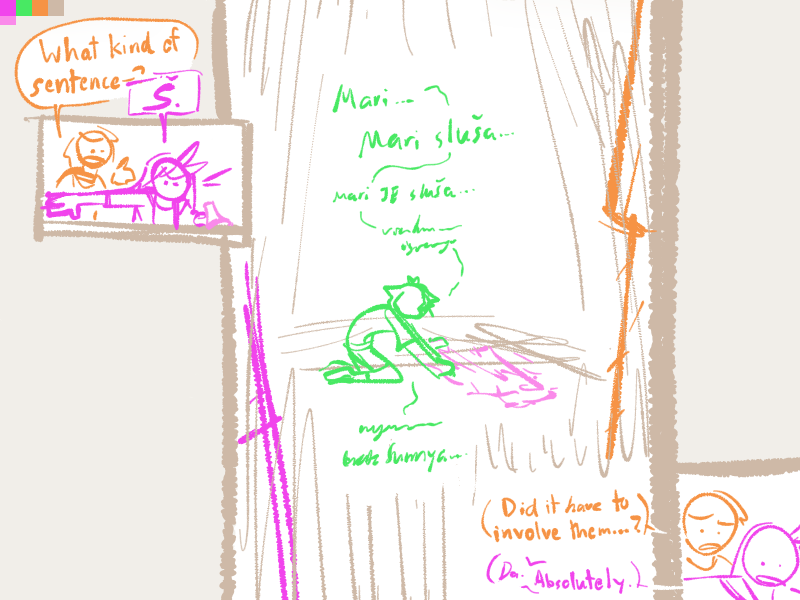 What kind of
sentence-?
Š.
Mari...
Mari sluša...
mari JE sluša...
(Did it have to
involve them...?)
(Da. Absolutely.)